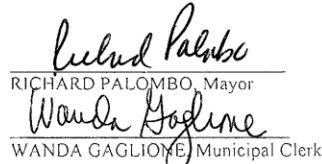 Richard Palombo
RICHARD PALOMBO, Mayor
Wanda Gaglione
WANDA GAGLIONE, Municipal Clerk